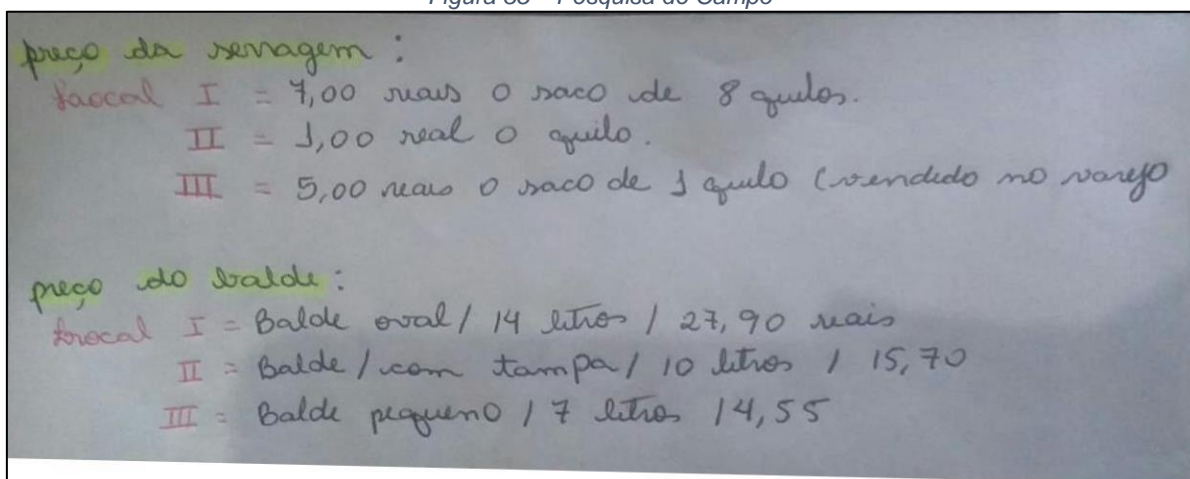 preço da serragem:
Local I = 7,00 reais o saco de 8 quilos.
II = 1,00 real o quilo.
III = 5,00 reais o saco de 1 quilo (vendido no varejo
preço do balde:
Local I = Balde oval / 14 litros / 27,90 reais
II = Balde / com tampa / 10 litros / 15,70
III = Balde pequeno / 7 litros /